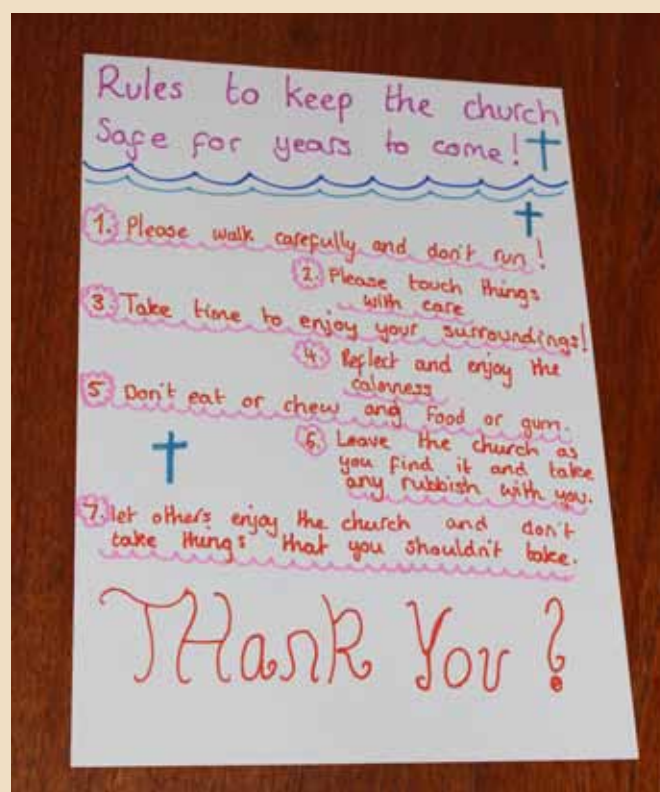 Rules to keep the church
Safe for years to come!
1. Please walk carefully and don't run!
2. Please touch things
with care
3. Take time to enjoy your surroundings!
4 Reflect and enjoy the
calmness
5 Don't eat or chew and food or gum.
6. Leave the church as
you find it and take
any rubbish with you.
7. let others enjoy the church and don't
take things that you shouldn't take.
THank You ?